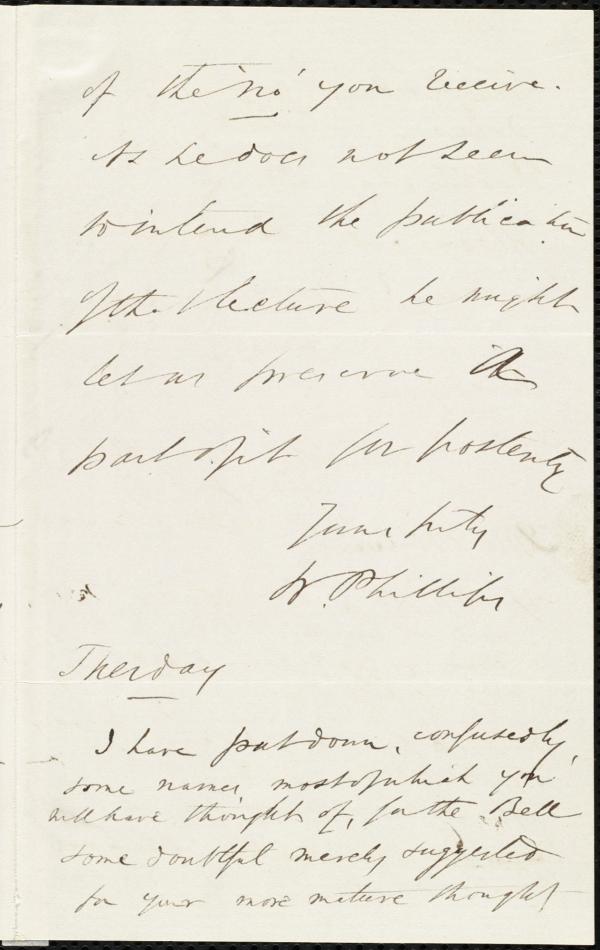 of the 'no' you receive.
As he does not seem
to intend the publication
of the lecture he might
let us preserve a
part of it for posterity
Yours frtly
W. Phillips
Tuesday
I have put down, confusedly,
some names most of which you
will have thought of, for the Bell
some doubtful merely suggested
for your more mature thought